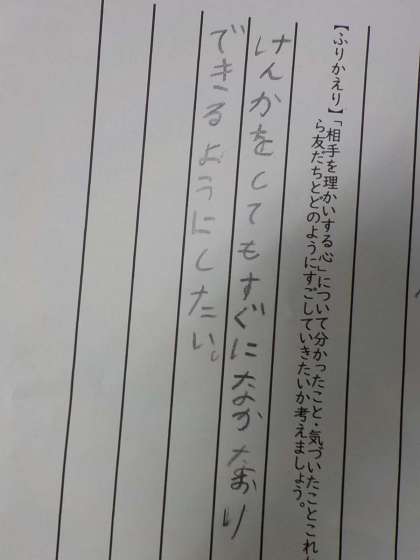 【ふりかえり】「相手を理かいする心」について分かったこと・気づいたことこれか
ら友だちとどのようにすごしていきたいか考えましょう。
けんかをしてもすぐになかなおり
できるようにしたい。